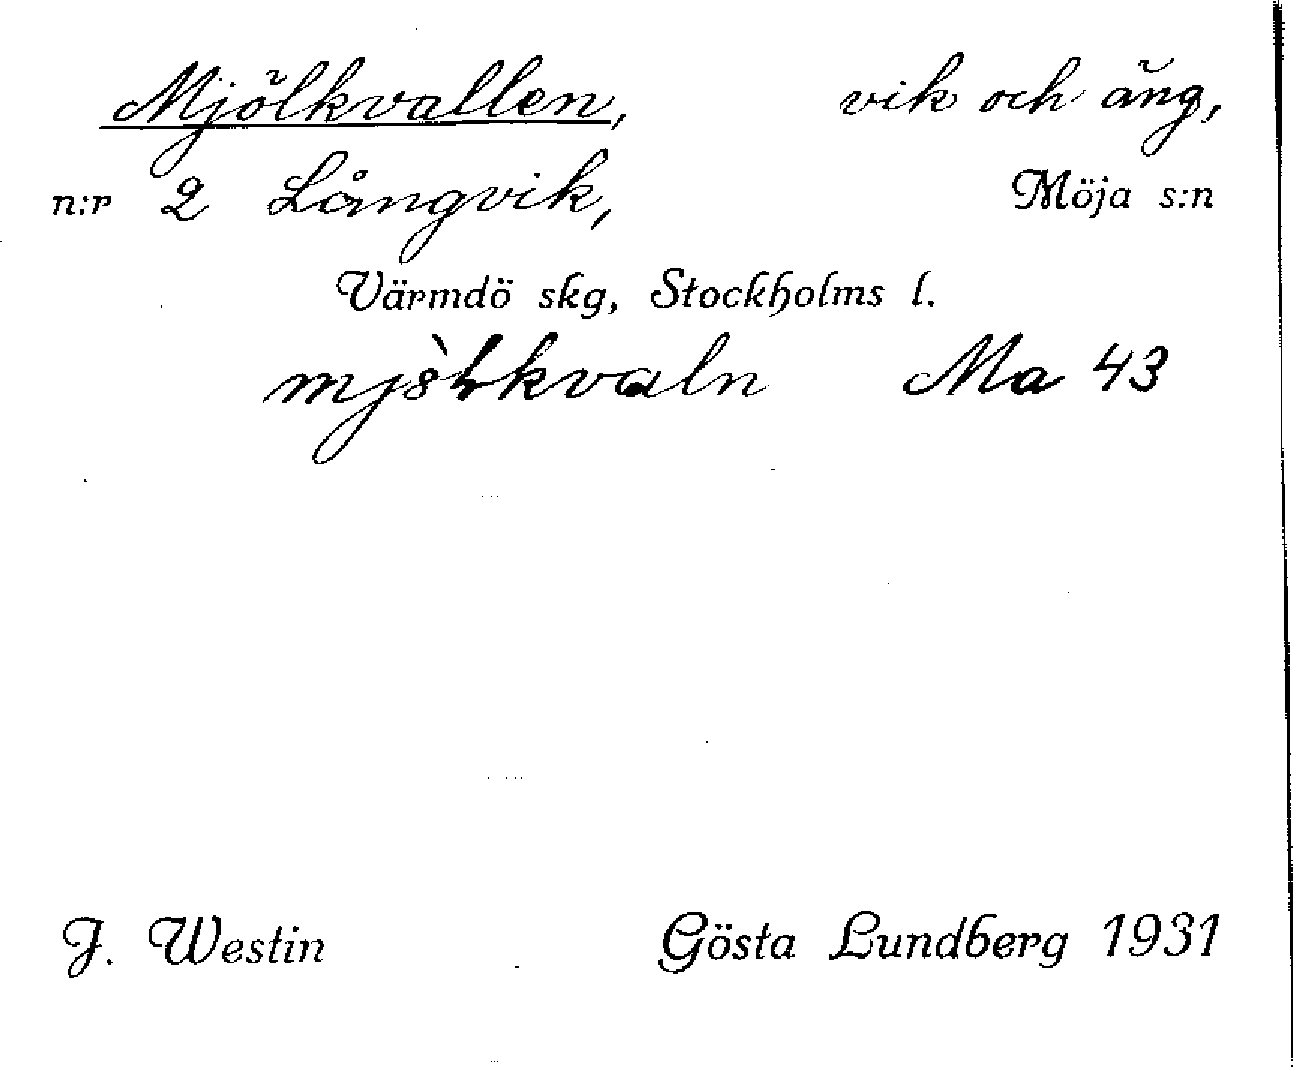 Mjölkvallen, vik och äng,
n:r 2 Långvik, Möja s:n
Värmdö skg, Stockholms l.
Ma 43
J. Westin Gösta Lundberg 1931